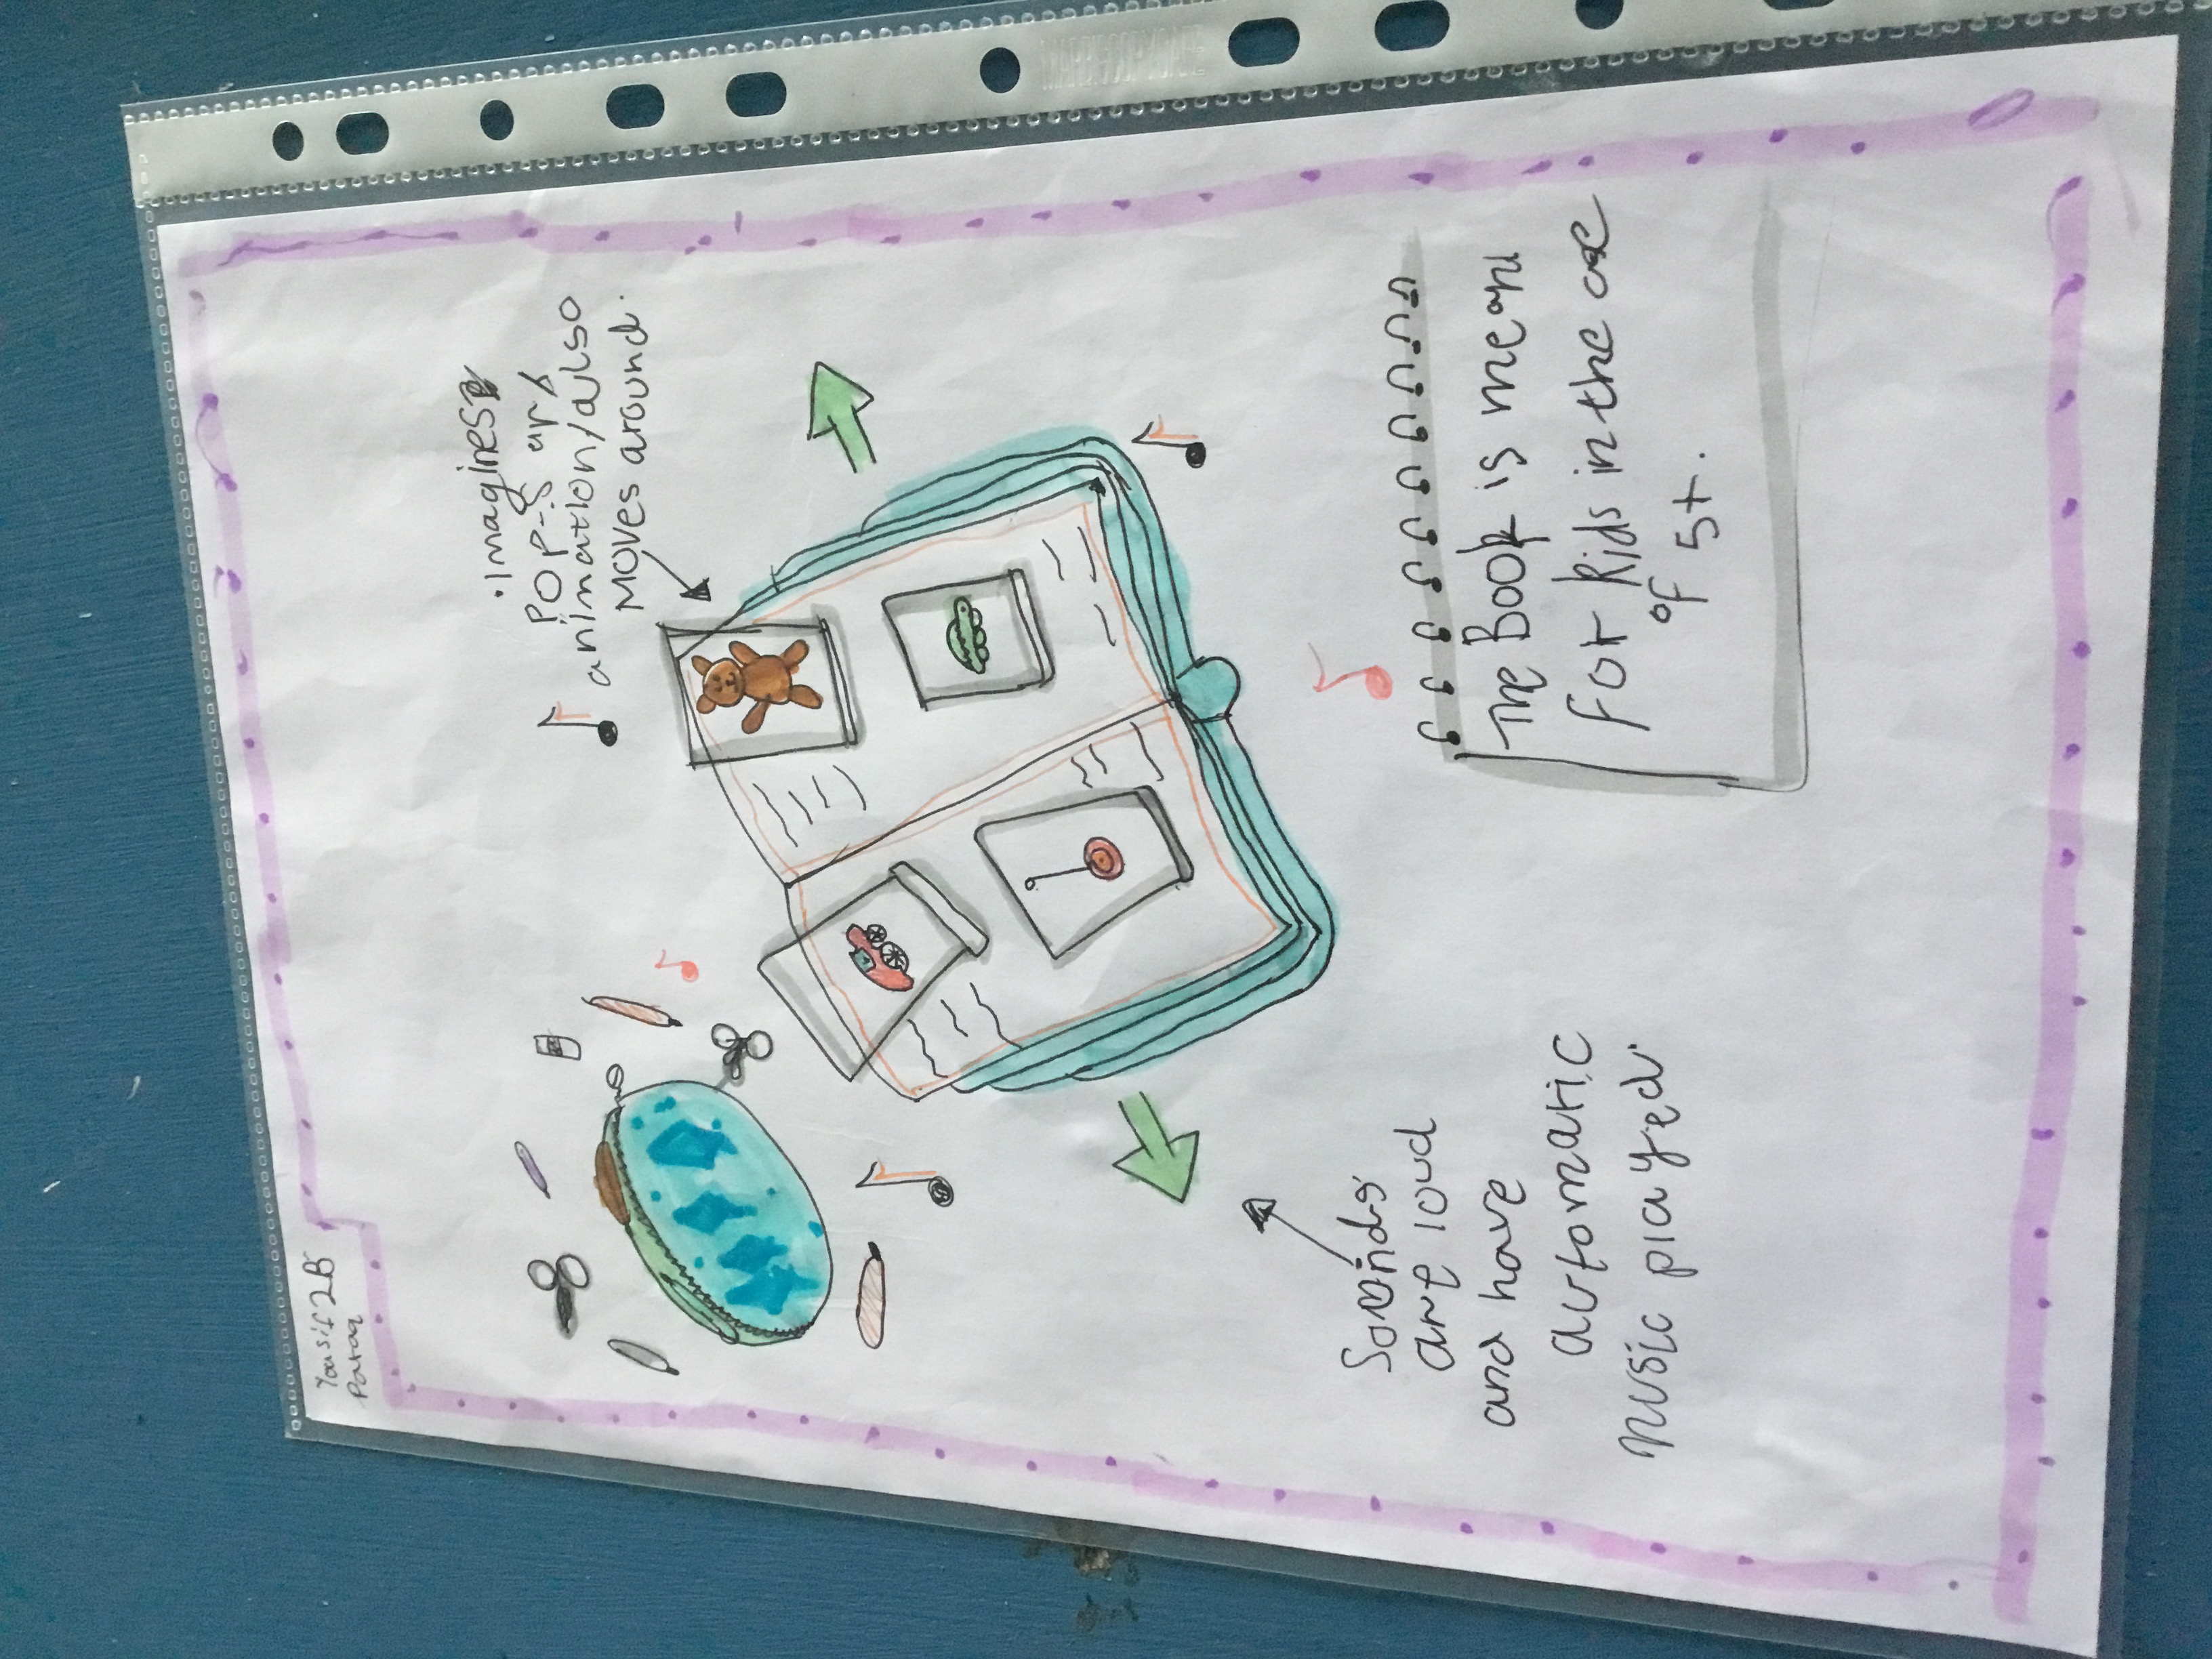 Yousif 2B
•Imagines
POP-s up
animation/also
MOVES around.
Sounds
are loud
and have
automatic
music played.
The Book is mean
For kids in the
of 5+.